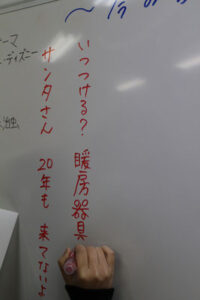 いつつける？ 暖房器具
サンタさん 20年も 来てないよ
ーマ
ディズニー